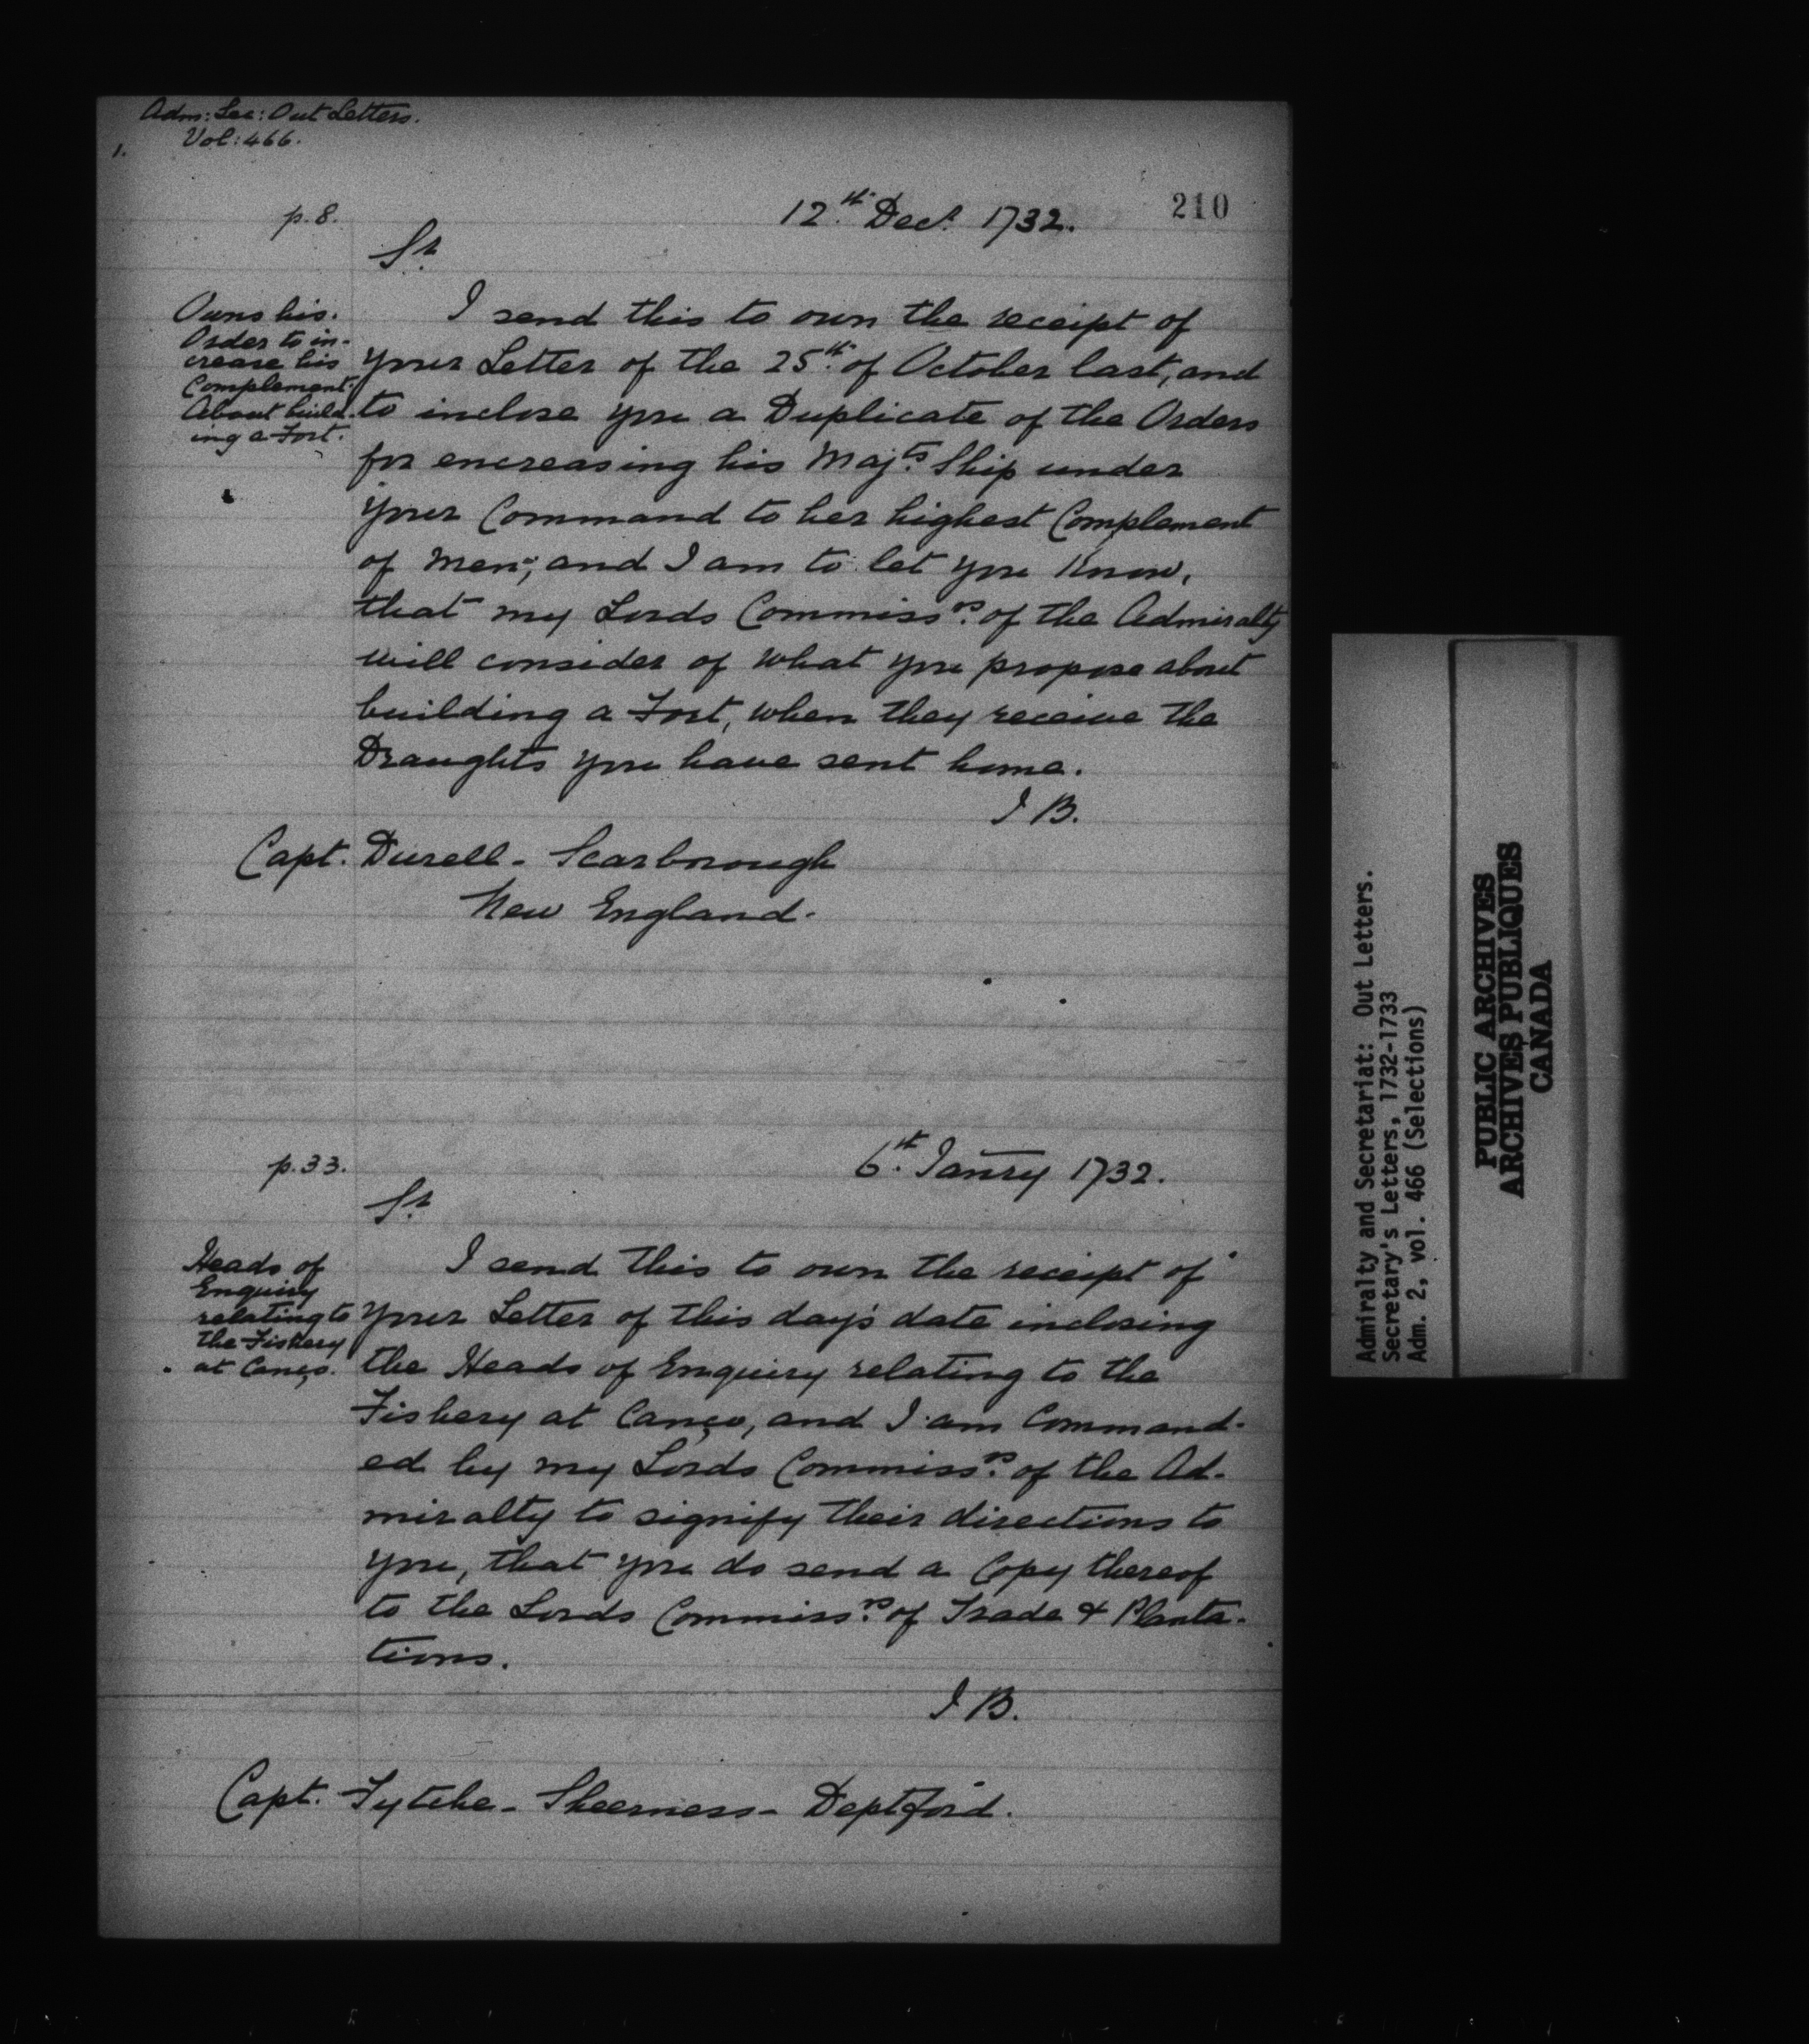 Adm: Sec: Out Letters.
Vol: 466.
1.
210
p. 8.
12th Decr. 1732.
Sr.
Owns his
Order to in-
crease his
Complement.
About build-
ing a Fort.
I send this to own the receipt of
your Letter of the 25th of October last, and
to inclose you a Duplicate of the Orders
for encreasing his Majts. Ship under
your Command to her highest Complement
of Men; and I am to let you know,
that my Lords Commissrs. of the Admiralty
will consider of what you propose about
building a Fort, when they receive the
Draughts you have sent home.
J B.
Capt. Durell - Scarborough
New England.
p. 33.
6th. Janry 1732.
Sr.
Heads of
Enquiry
relating to
the Fishery
at Canço.
I send this to own the receipt of
your Letter of this day's date inclosing
the Heads of Enquiry relating to the
Fishery at Canço, and I am Command-
ed by my Lords Commissrs. of the Ad-
miralty to signify their directions to
you, that you do send a Copy thereof
to the Lords Commissrs. of Trade & Planta-
tions.
J B.
Capt. Fytche - Sheerness - Deptford.
Admiralty and Secretariat: Out Letters.
Secretary's Letters, 1732-1733
Adm. 2, vol. 466 (Selections)
PUBLIC ARCHIVES
ARCHIVES PUBLIQUES
CANADA